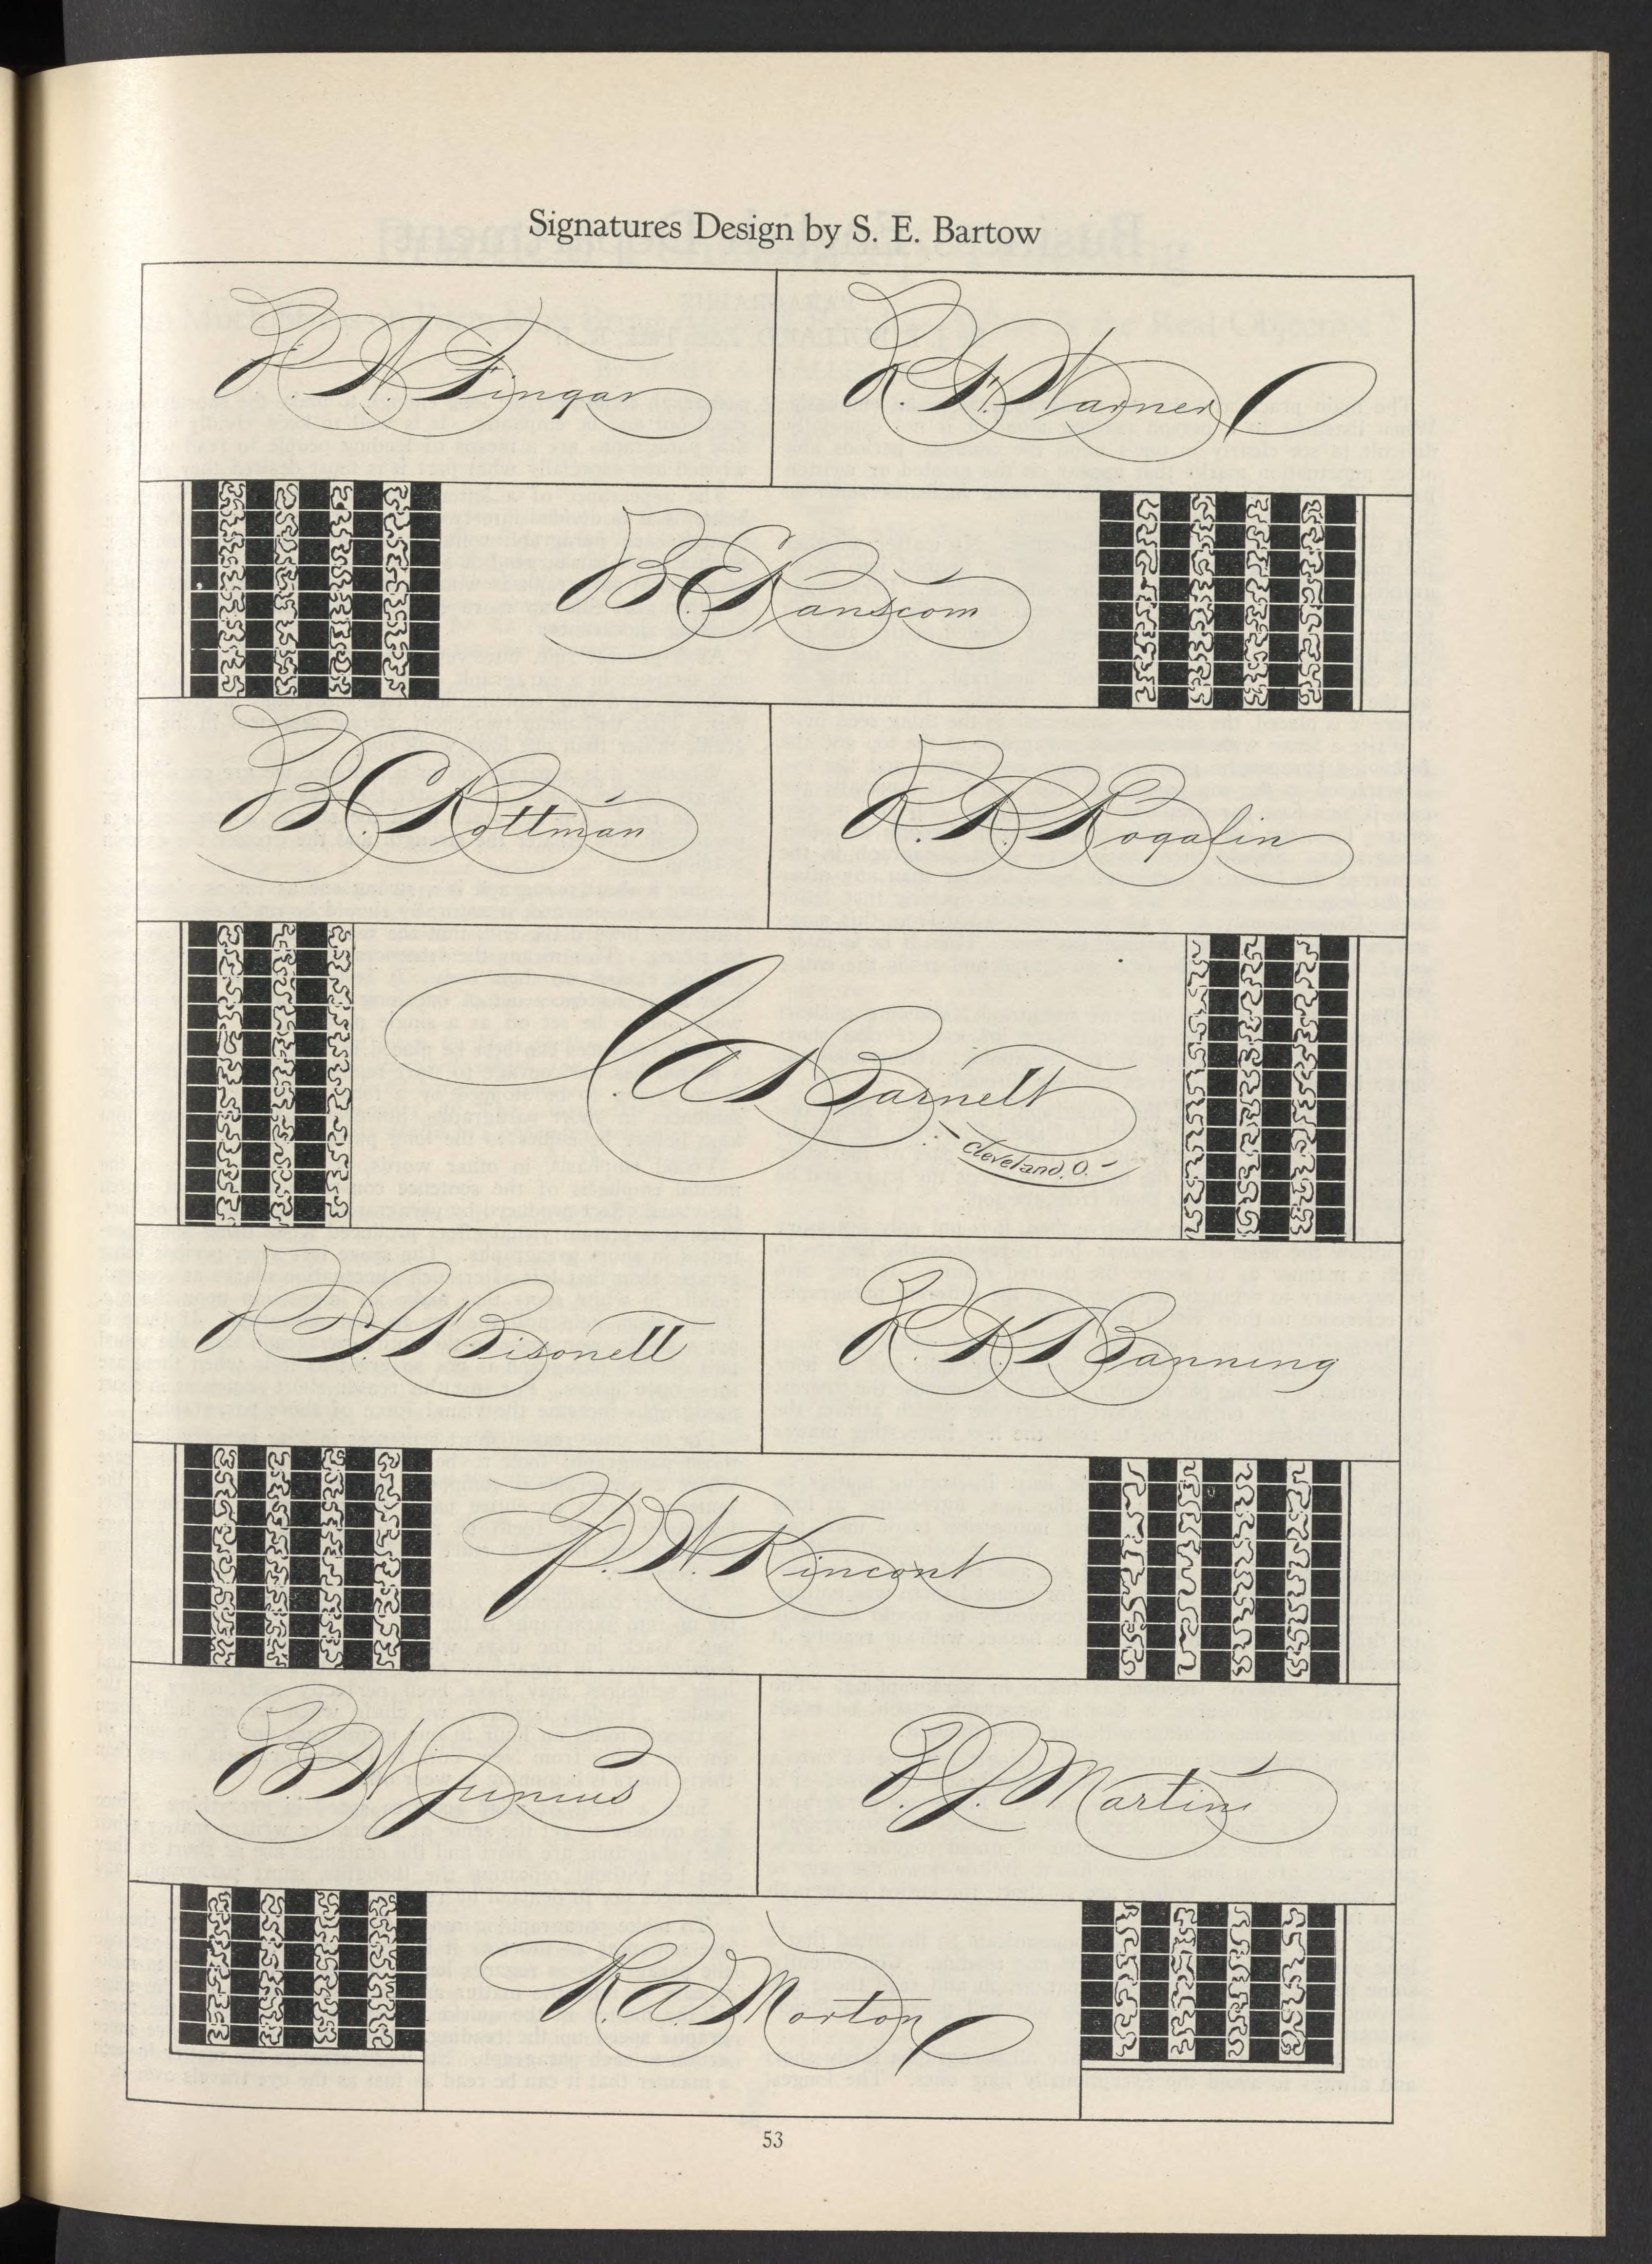 Signatures Design by S. E. Bartow
P. W. Fingar
R. F. Warner
B. C. Ranscom
B. C. Rottman
R. R. Rogalin
C. A. Barnett
Cleveland, O.
P. S. Bisonett
R. K. Banning
P. W. Kincont
B. W. Junius
P. J. Martin
R. A. Morton
53